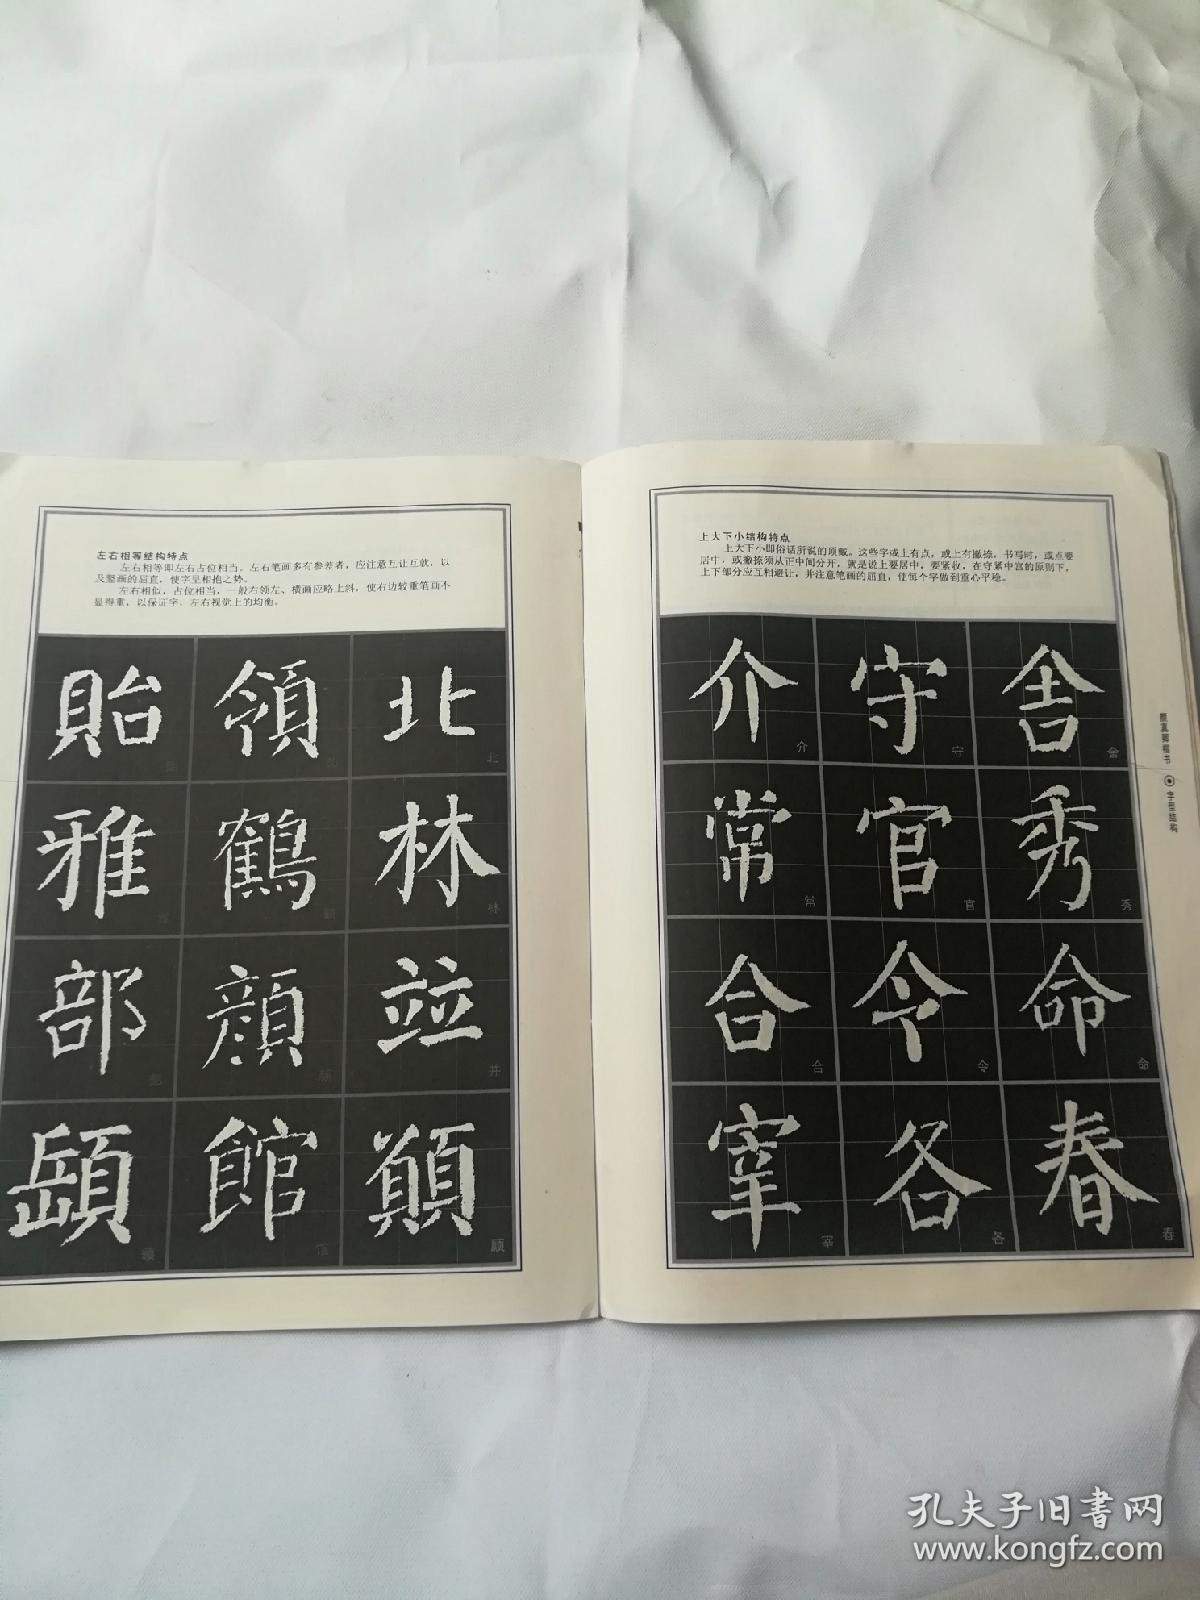 左右相等结构特点
左右相等即左右占位相当。左右笔画多有参差者，应注意互让互就，以
及竖画的屈直，使字呈相抱之势。
左右相似，占位相当，一般右领左、横画应略上斜，使右边较重笔画不
显得重，以保证字、左右视觉上的均衡。
貽 領 北
北
雅 鶴 林
林
部 顔 竝
并
館 顧
馆 顾
上大下小结构特点
上大下小即俗话所说的顶戴。这些字或上有点，或上有撇捺，书写时，或点要
居中，或撇捺须从正中间分开，就是说上要居中，要紧收，在守紧中宫的原则下，
上下部分应互相避让，并注意笔画的屈直，使每个字做到重心平稳。
介 守 舍
介 守 舍
常 官 秀
常 官 秀
合 令 命
合 令 命
宰 各 春
宰 各 春
颜真卿楷书
字型结构
孔夫子旧书网
www.kongfz.com